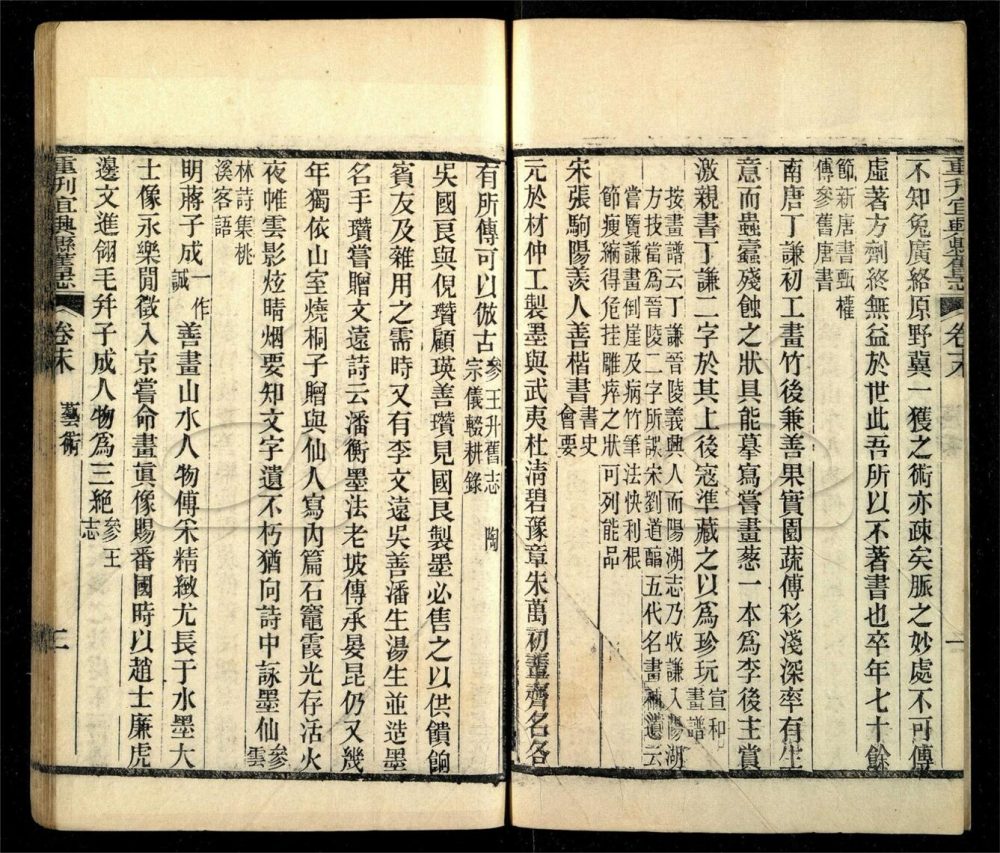 不知兔廣絡原野冀一獲之術亦疎矣脈之妙處不可傳
虛著方劑終無益於世此吾所以不著書也卒年七十餘
節新唐書甄權
傳參舊唐書
南唐丁謙初工畫竹後兼善果實園蔬傅彩淺深率有生
意而蟲蠧殘蝕之狀具能摹寫嘗畫葱一本爲李後主賞
激親書丁謙二字於其上後寇準藏之以爲珍玩宣和
畫譜
按畫譜云丁謙晉陵義興人而陽湖志乃收謙入陽湖
方技當爲晉陵二字所誤宋劉道醕五代名畫補遺云
嘗覽謙畫倒崖及病竹筆法快利根
節瘦瘺得危挂雕瘁之狀可列能品
宋張駒陽羨人善楷書書史
會要
元於材仲工製墨與武夷杜淸碧豫章朱萬初輩齊名各
重刋宜興縣舊志
卷末
藝術
二
有所傳可以倣古參王升舊志 陶
宗儀輟耕錄
吳國良與倪瓚顧瑛善瓚見國良製墨必售之以供饋餉
賓友及雜用之需時又有李文遠吳善潘生湯生並造墨
名手瓚嘗贈文遠詩云潘衡墨法老坡傳承晏昆仍又幾
年獨依山室燒桐子贈與仙人寫內篇石竈霞光存活火
夜帷雲影炫晴烟要知文字遺不朽猶向詩中詠墨仙參
雲
林詩集桃
溪客語
明蔣子成一作
誠善畫山水人物傅采精緻尤長于水墨大
士像永樂閒徵入京嘗命畫眞像賜番國時以趙士廉虎
邊文進翎毛幷子成人物爲三絕參王
志
重刋宜興縣舊志
卷末
藝術
二